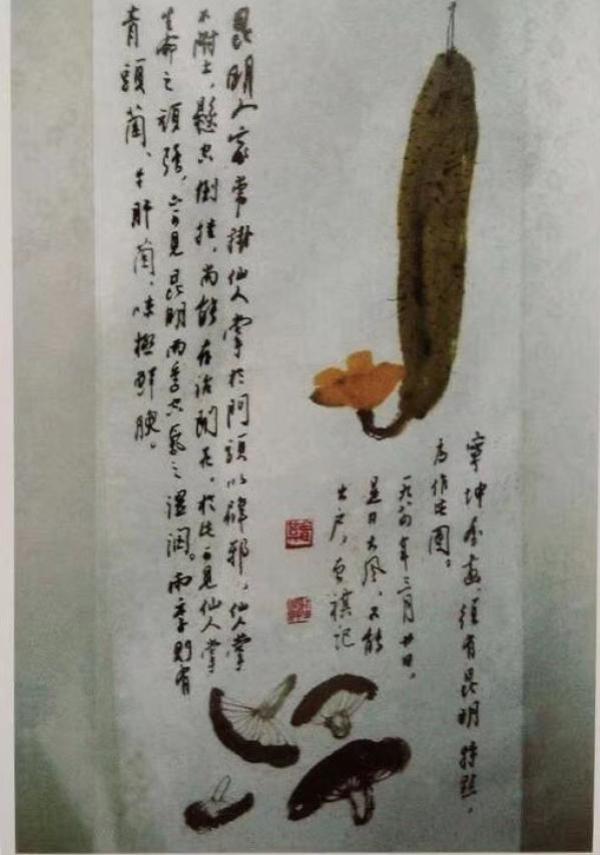 寧坤屬畫，須有昆明特點，
為作此圖。
一九八四年三月廿日，
是日大風，不能
出户，曾祺記
昆明人家常掛仙人掌於門頭以辟邪，仙人掌
不附土，懸空倒挂，尚能存活開花。於此可見仙人掌
生命之頑強，亦可見昆明雨季空氣之濕潤。雨季則有
青頭菌、牛肝菌，味極鮮腴。